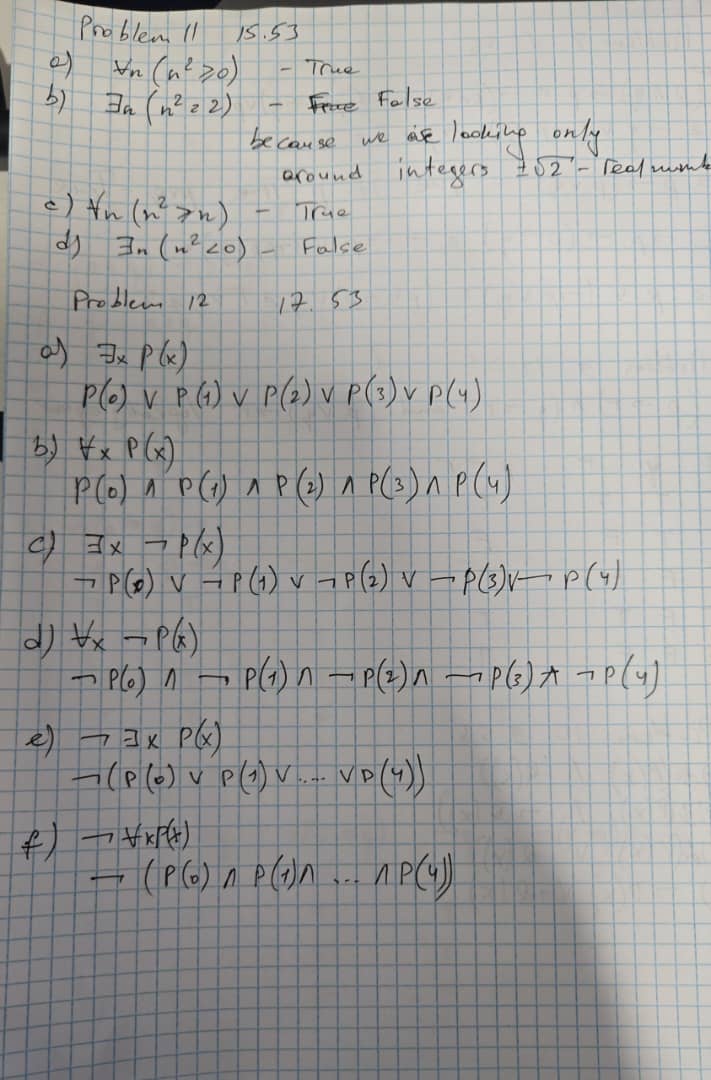 Problem 11 15.53
a) ∀n (n² ≥ 0) - True
b) ∃n (n² = 2) - False
because we are looking only
around integers ±√2 - real numb
c) ∀n (n² ≥ n) - True
d) ∃n (n² < 0) - False
Problem 12 17.53
a) ∃x P(x)
P(0) ∨ P(1) ∨ P(2) ∨ P(3) ∨ P(4)
b) ∀x P(x)
P(0) ∧ P(1) ∧ P(2) ∧ P(3) ∧ P(4)
c) ∃x ¬P(x)
¬P(0) ∨ ¬P(1) ∨ ¬P(2) ∨ ¬P(3) ∨ ¬P(4)
d) ∀x ¬P(x)
¬P(0) ∧ ¬P(1) ∧ ¬P(2) ∧ ¬P(3) ∧ ¬P(4)
e) ¬∃x P(x)
¬(P(0) ∨ P(1) ∨ .... ∨ P(4))
f) ¬∀xP(x)
¬(P(0) ∧ P(1) ∧ ... ∧ P(4))